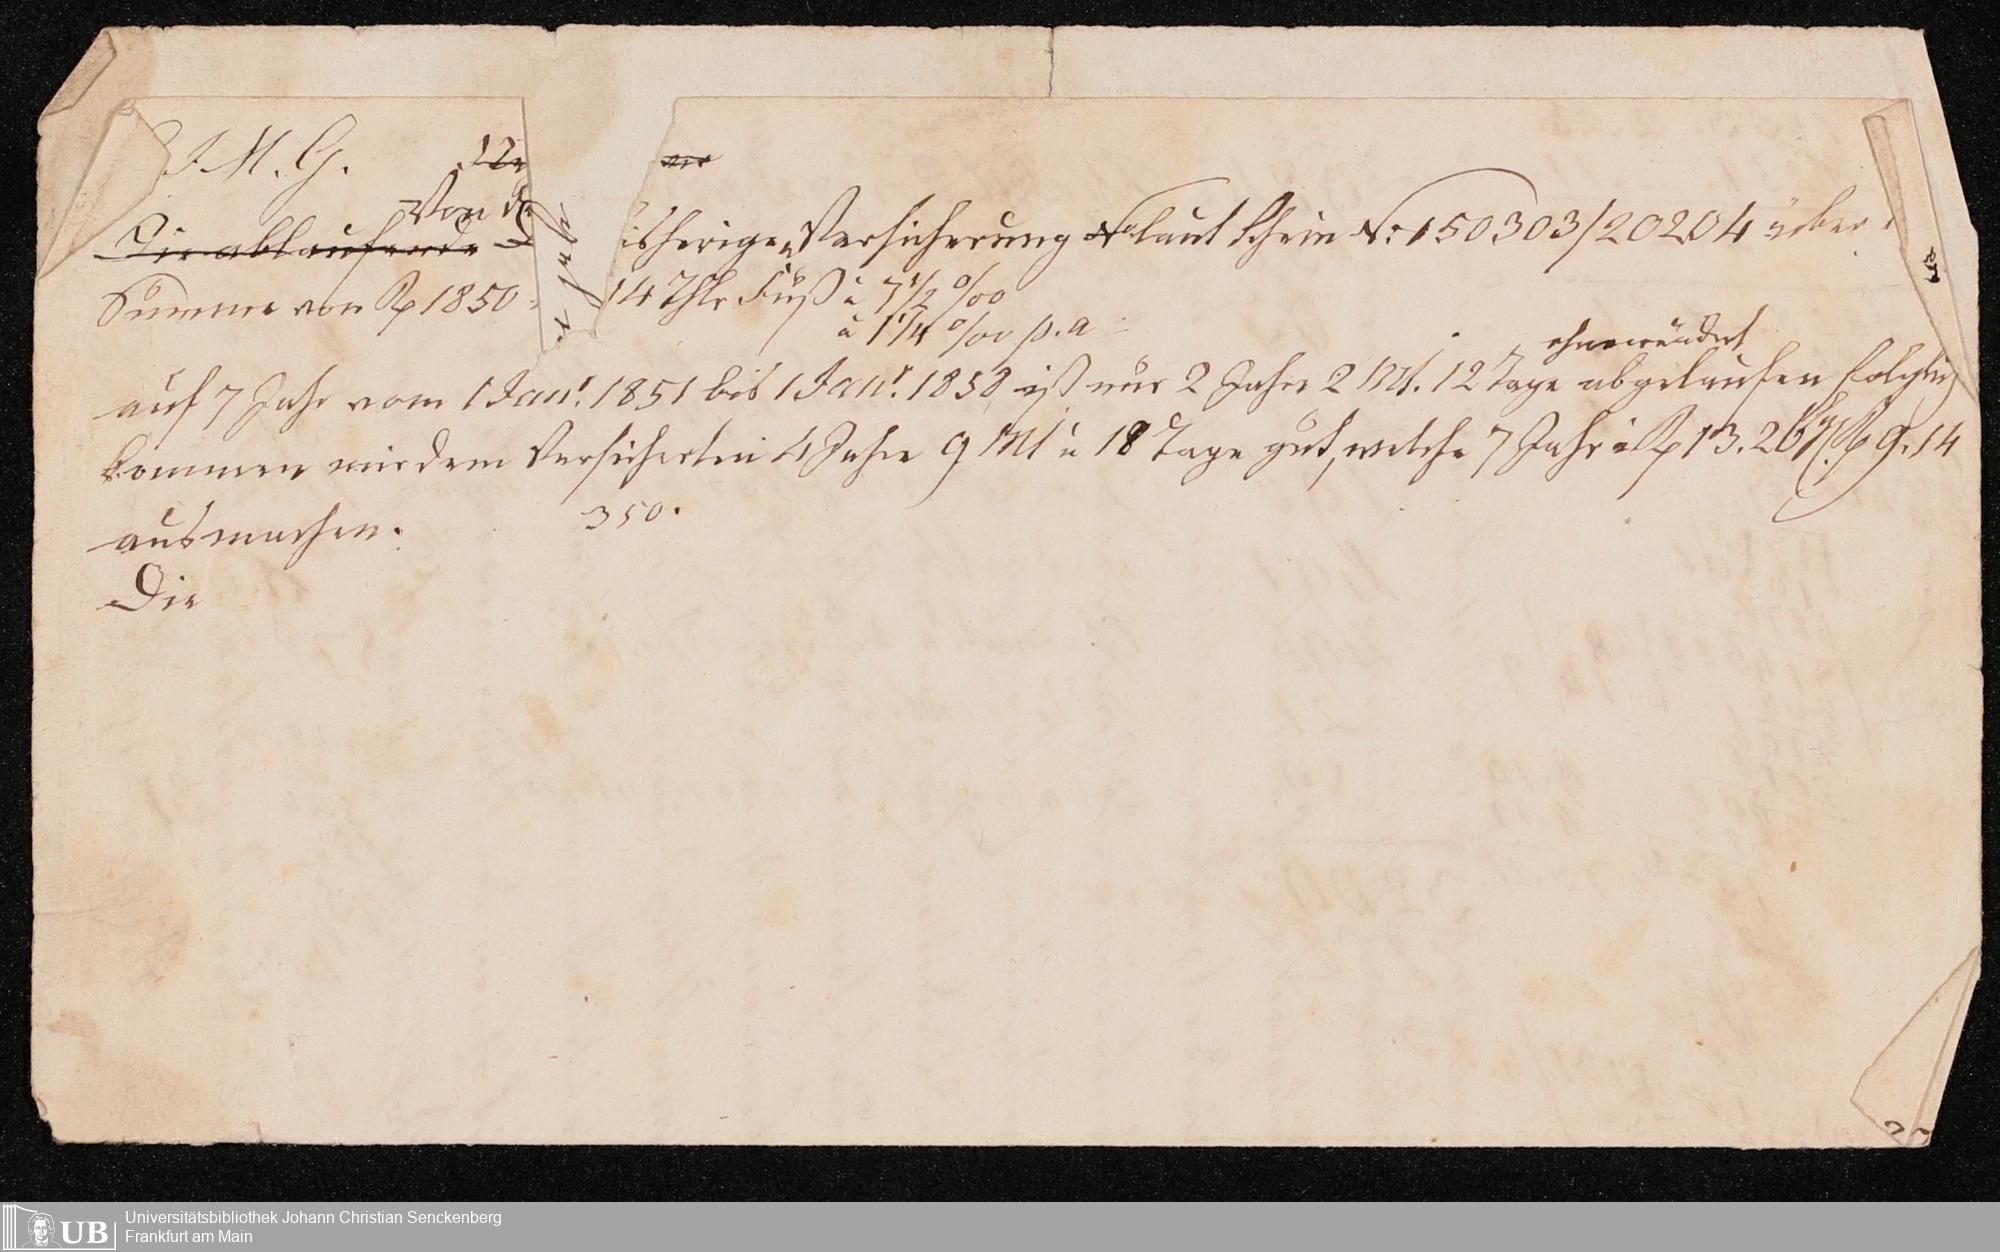 J. M. G.
Von d
Die ablaufende D isherigen Versicherung No laut Schein No: 150303/20204 über
Summe von Rp 1850 14 Thlr Fuß à 7 1/2 %00
à 1 1/4 %00 p. a
auf 7 Jahr vom 1 Janr. 1851 bis 1 Janr. 1858 ist nur 2 Jahre 2 Mt. 12 Tage abgelaufen folglich
kommen wir dem Versicherten 4 Jahre 9 Mt u 18 Tage gut, welche 7 Jahr à Rp 13. 26 Rp 9. 14
ausmachen. 350.
Die
Universitätsbibliothek Johann Christian Senckenberg
Frankfurt am Main
UB